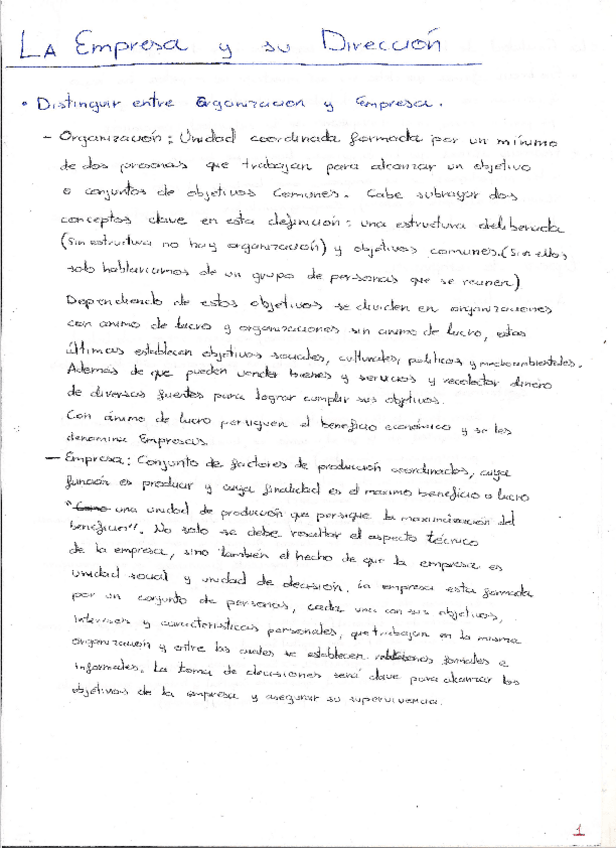 La Empresa y su Dirección
• Distinguir entre Organización y Empresa.
- Organización: Unidad coordinada formada por un mínimo
de dos personas que trabajan para alcanzar un objetivo
o conjuntos de objetivos comunes. Cabe subrayar dos
conceptos clave en esta definición: una estructura deliberada
(sin estructura no hay organización) y objetivos comunes. (sin ellos
solo hablaríamos de un grupo de personas que se reunen)
Dependiendo de estos objetivos se dividen en organizaciones
con animo de lucro y organizaciones sin animo de lucro, estas
últimas establecen objetivos sociales, culturales, politicos y medioambientales.
Además de que pueden vender bienes y servicios y recolectar dinero
de diversas fuentes para lograr cumplir sus objetivos.
Con ánimo de lucro persiguen el beneficio económico y se les
denomina Empresas.
- Empresa: Conjunto de factores de producción coordinados, cuya
función es producir y cuya finalidad es el maximo beneficio o lucro
"Como una unidad de producción que persigue la maximización del
beneficio". No solo se debe resaltar el aspecto técnico
de la empresa, sino también el hecho de que la empresa es
unidad social y unidad de decisión. La empresa esta formada
por un conjunto de personas, cada una con sus objetivos,
intereses y caracteristicas personales, que trabajan en la misma
organización y entre los cuales se establecen relaciones formales e
informales. La toma de decisiones será clave para alcanzar los
objetivos de la empresa y asegurar su supervivencia.
1